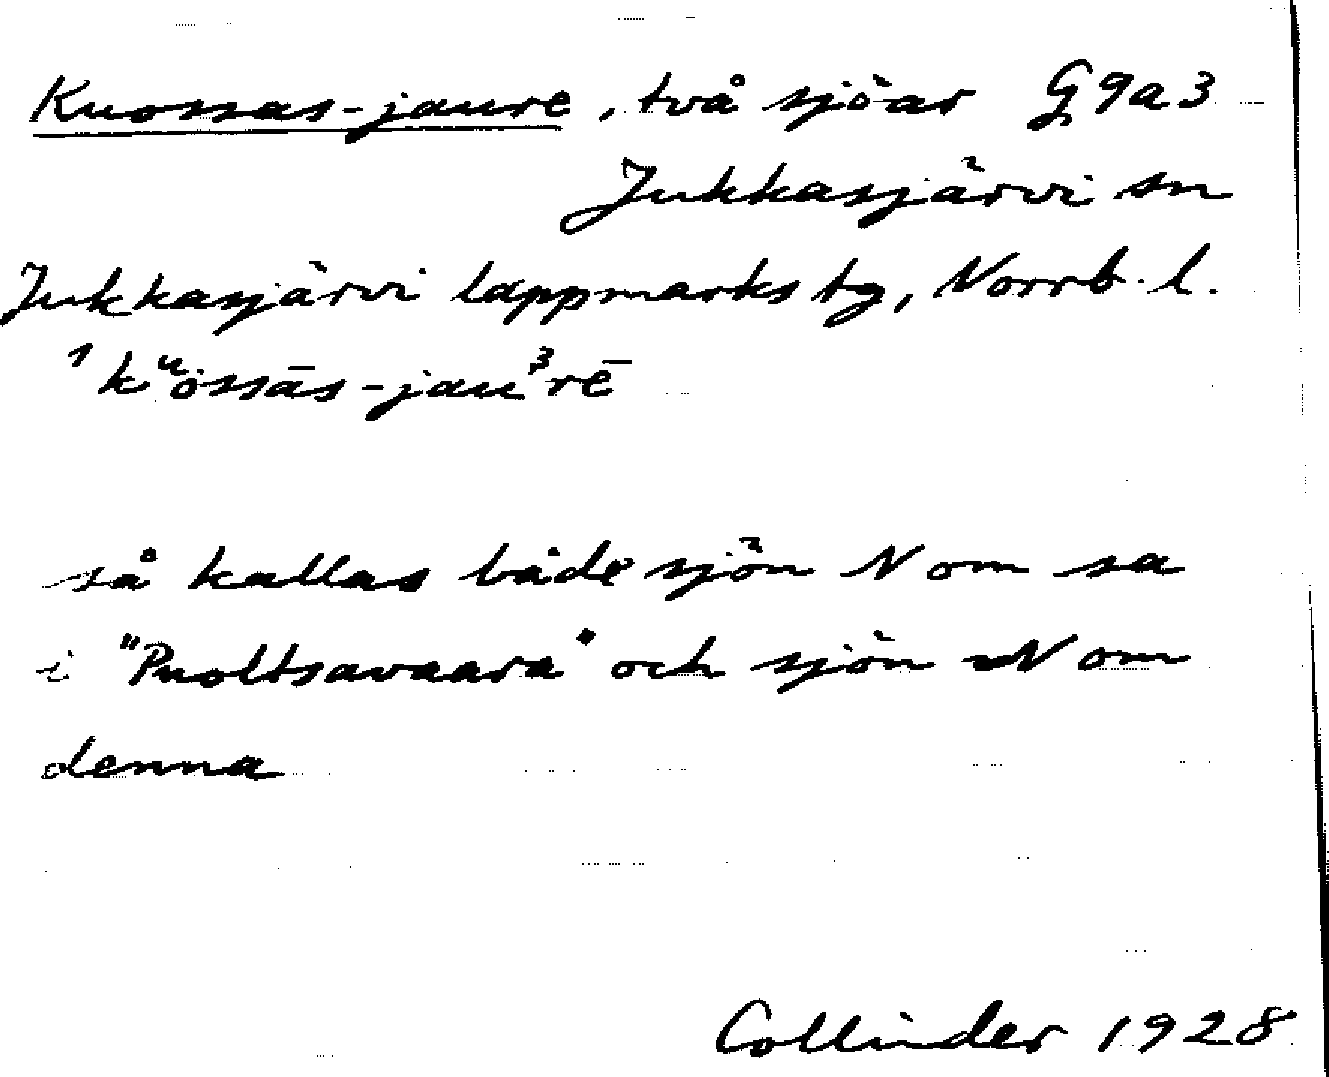 Kuossas-jaure, två sjöar G9a3
Jukkasjärvi sn
Jukkasjärvi lappmarks tg, Norrb. l.
¹kᵘössās-jau³rē
så kallas både sjön N om sa
i "Puoltsavaara" och sjön N om
denna
Collinder 1928